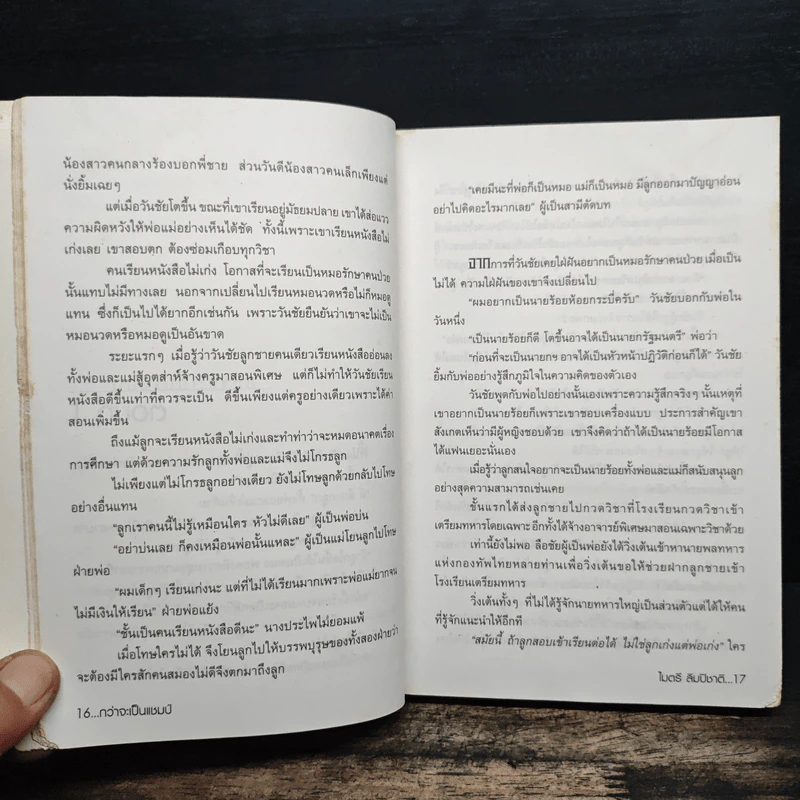 น้องสาวคนกลางร้องบอกพี่ชาย ส่วนวันดีน้องสาวคนเล็กเพียงแต่
นั่งยิ้มเฉยๆ
แต่เมื่อวันชัยโตขึ้น ขณะที่เขาเรียนอยู่มัธยมปลาย เขาได้ส่อแวว
ความผิดหวังให้พ่อแม่อย่างเห็นได้ชัด ทั้งนี้เพราะเขาเรียนหนังสือไม่
เก่งเลย เขาสอบตก ต้องซ่อมเกือบทุกวิชา
คนเรียนหนังสือไม่เก่ง โอกาสที่จะเรียนเป็นหมอรักษาคนป่วย
นั้นแทบไม่มีทางเลย นอกจากเปลี่ยนไปเรียนหมอนวดหรือไม่ก็หมอดู
แทน ซึ่งก็เป็นไปได้ยากอีกเช่นกัน เพราะวันชัยยืนยันว่าเขาจะไม่เป็น
หมอนวดหรือหมอดูเป็นอันขาด
ระยะแรกๆ เมื่อรู้ว่าวันชัยลูกชายคนเดียวเรียนหนังสืออ่อนลง
ทั้งพ่อและแม่สู้อุตส่าห์จ้างครูมาสอนพิเศษ แต่ก็ไม่ทำให้วันชัยเรียน
หนังสือดีขึ้นเท่าที่ควรจะเป็น ดีขึ้นเพียงแต่ครูอย่างเดียวเพราะได้ค่า
สอนเพิ่มขึ้น
ถึงแม้ลูกจะเรียนหนังสือไม่เก่งและทำท่าว่าจะหมดอนาคตเรื่อง
การศึกษา แต่ด้วยความรักลูกทั้งพ่อและแม่จึงไม่โกรธลูก
ไม่เพียงแต่ไม่โกรธลูกอย่างเดียว ยังไม่โทษลูกด้วยกลับไปโทษ
อย่างอื่นแทน
“ลูกเราคนนี้ไม่รู้เหมือนใคร หัวไม่ดีเลย” ผู้เป็นพ่อบ่น
“อย่าบ่นเลย ก็คงเหมือนพ่อนั้นแหละ” ผู้เป็นแม่โยนลูกไปโทษ
ฝ่ายพ่อ
“ผมเด็กๆ เรียนเก่งนะ แต่ที่ไม่ได้เรียนมากเพราะพ่อแม่ยากจน
ไม่มีเงินให้เรียน” ฝ่ายพ่อแย้ง
“ชั้นเป็นคนเรียนหนังสือดีนะ” นางประไพไม่ยอมแพ้
เมื่อโทษใครไม่ได้ จึงโยนลูกไปให้บรรพบุรุษของทั้งสองฝ่ายว่า
จะต้องมีใครสักคนสมองไม่ดีจึงตกมาถึงลูก
16...กว่าจะเป็นแชมป์
“เคยมีนะที่พ่อก็เป็นหมอ แม่ก็เป็นหมอ มีลูกออกมาปัญญาอ่อน
อย่าไปคิดอะไรมากเลย” ผู้เป็นสามีตัดบท
จากการที่วันชัยเคยใฝ่ฝันอยากเป็นหมอรักษาคนป่วย เมื่อเป็น
ไม่ได้ ความใฝ่ฝันของเขาจึงเปลี่ยนไป
“ผมอยากเป็นนายร้อยห้อยกระบี่ครับ” วันชัยบอกกับพ่อใน
วันหนึ่ง
“เป็นนายร้อยก็ดี โตขึ้นอาจได้เป็นนายกรัฐมนตรี” พ่อว่า
“ก่อนที่จะเป็นนายกฯ อาจได้เป็นหัวหน้าปฏิวัติก่อนก็ได้” วันชัย
ยิ้มกับพ่ออย่างรู้สึกภูมิใจในความคิดของตัวเอง
วันชัยพูดกับพ่อไปอย่างนั้นเองเพราะความรู้สึกจริงๆ นั้นเหตุที่
เขาอยากเป็นนายร้อยก็เพราะเขาชอบเครื่องแบบ ประการสำคัญเขา
สังเกตเห็นว่ามีผู้หญิงชอบด้วย เขาจึงคิดว่าถ้าได้เป็นนายร้อยมีโอกาส
ได้แฟนเยอะนั่นเอง
เมื่อรู้ว่าลูกสนใจอยากจะเป็นนายร้อยทั้งพ่อและแม่ก็สนับสนุนลูก
อย่างสุดความสามารถเช่นเคย
ขั้นแรกได้ส่งลูกชายไปกวดวิชาที่โรงเรียนกวดวิชาเข้า
เตรียมทหารโดยเฉพาะ อีกทั้งได้จ้างอาจารย์พิเศษมาสอนเฉพาะวิชาด้วย
เท่านี้ยังไม่พอ ลือชัยผู้เป็นพ่อยังได้วิ่งเต้นเข้าหานายพลทหาร
แห่งกองทัพไทยหลายท่านเพื่อวิ่งเต้นขอให้ช่วยฝากลูกชายเข้า
โรงเรียนเตรียมทหาร
วิ่งเต้นทั้งๆ ที่ไม่ได้รู้จักนายทหารใหญ่เป็นส่วนตัวแต่ได้ให้คน
ที่รู้จักแนะนำให้อีกที
“สมัยนี้ ถ้าลูกสอบเข้าเรียนต่อได้ ไม่ใช่ลูกเก่งแต่พ่อเก่ง” ใคร
ไมตรี ลิมปิชาติ...17